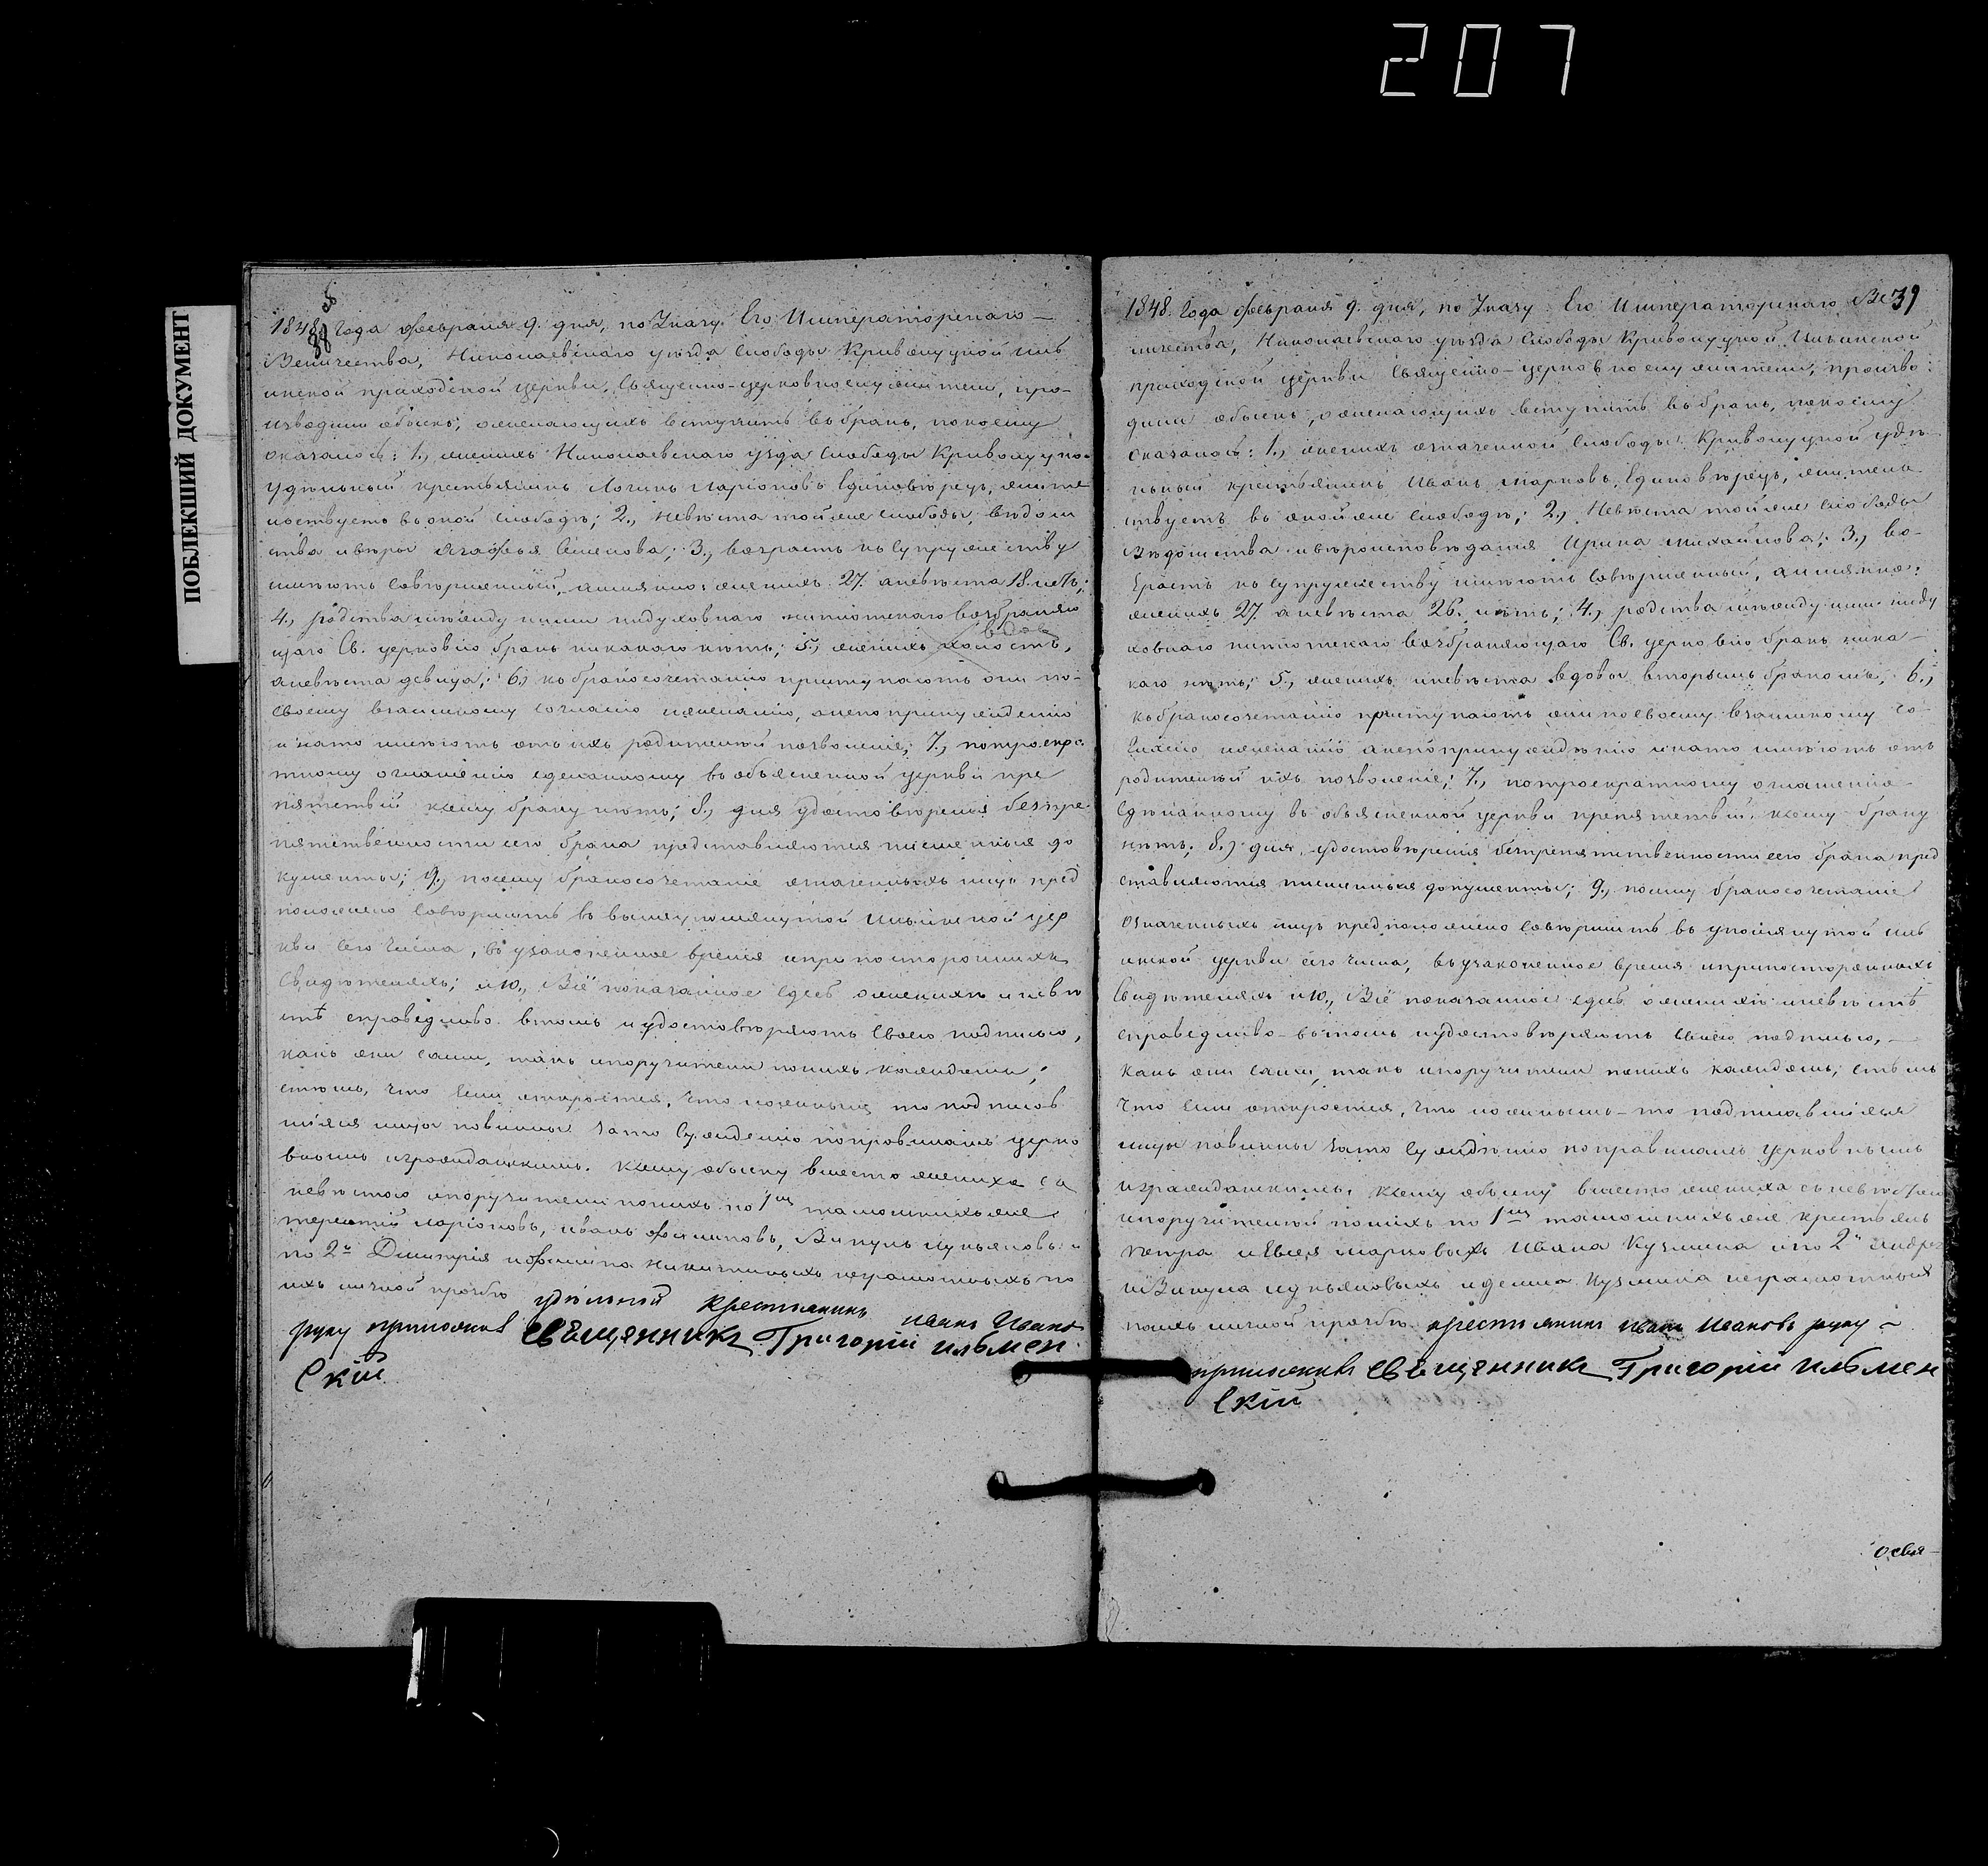 207
ПОБЛЕКШИЙ ДОКУМЕНТ
38
1848 года февраля 9. дня, по Указу Его Императорскаго
Величества, Николаевскаго уѣзда Слободы Криволуцкой Иль
инской приходской церкви, Священно-церковнослужители, про-
изводили обыскъ, о желающихъ вступить въ бракъ, по коему
оказалось: 1., женихъ Николаевскаго уѣзда Слободы Криволуцко
удѣльный крестьянинъ Логинъ Ларіоновъ Единовѣрецъ, жите
льствуетъ въ оной Слободѣ; 2., Невѣста той же Слободы, вѣдом
ства и вѣры Агафья Семенова; 3., возрастъ къ супружеству
имѣютъ совершенный, а именно: женихъ 27. а невѣста 18. лѣтъ;
4., родства между ними ни духовнаго ни плотскаго возбраняю
щаго Св. церковію бракъ никакого нѣтъ; 5., женихъ холостъ,
вдовъ
а невѣста девица; 6., къ бракосочетанію приступаютъ они по-
своему взаимному согласію и желанію, а не по принужденію
и на то имѣютъ отъ ихъ родителей позволеніе; 7., по троекра
тному оглашенію сделанному въ объясненной церкви пре
пятствій къ сему браку нѣтъ; 8., для удостовѣренія безпре-
пятственности сего брака представляются писменныя до
кументы; 9., посему бракосочетаніе означенныхъ лицъ пред
положено совершить въ вышеупомянутой Ильинской цер
кви сего числа, въ узаконенное время и при постороннихъ
Свидѣтеляхъ; и 10., Всё показанное сдесь о женихѣ и невѣ
стѣ справедливо. въ томъ и удостовѣряютъ своею подписью,
какъ они сами, такъ и поручители по нихъ каждый;
съ тѣмъ, что если откроется, что ложнымъ то подписав
шіяся лица повинны за то сужденію по правиламъ церко
внымъ и гражданскимъ. К сему обыску вместо жениха съ
невѣстою и поручителей по нихъ по 1му тамошнихъ же
терентій Ларіоновъ, иванъ Филиповъ, Викулъ Лукьяновъ и
по 2й Димитрія и Филипа Никитиныхъ неграмотныхъ по
ихъ личной прозбѣ удѣльной крестьянинъ иванъ Ивано
руку приложилъ свѣщенникъ Григорій ильмен
скій
39
1848. года февраля 9. дня, по Указу Его Императорскаго Ве
личества, Николаевскаго уѣзда Слободы Криволуцкой Ильинской
приходской церкви Священно-церковнослужители, произво
дили обыскъ, о желающихъ вступить въ бракъ, по коему
оказалось: 1., женихъ означенной Слободы Криволуцкой удѣ-
льный крестьянинъ Иванъ Марковъ, Единовѣрецъ, жители
ствуетъ въ оной же Слободѣ; 2., Невѣста той же слободы
вѣдомства и вѣроисповѣданія Ирина Михайлова; 3., во-
зрастъ къ супружеству имѣютъ совершенный, а именно:
женихъ 27. а невѣста 26. лѣтъ; 4., родства между ними ни ду
ховнаго ни плотскаго возбраняющаго Св. церковію бракъ ника-
каго нѣтъ; 5., женихъ и невѣста вдовы вторымъ бракомъ; 6.,
къ бракосочетанію приступаютъ они по своему взаимному со-
гласію и желанію а не по принужденію и на то имѣютъ отъ
родителей ихъ позволеніе; 7., по троекратному оглашенію
сдѣланному въ объясненной церкви препятствій к сему браку
нѣтъ; 8., для удостовѣренія безпрепятственности сего брака пред
ставляются писменныя документы; 9., посему бракосочетаніе
означенныхъ лицъ предположено совершить въ упомянутой Иль
инской церкви сего числа, въ узаконенное время и при постороннихъ
Свидѣтеляхъ и 10., Всё показанное сдесь о женихѣ и невѣстѣ
справедливо въ томъ и удостовѣряютъ своею подписью,
какъ они сами, такъ и поручители по нихъ каждый, съ тѣмъ
что если откроется, что ложнымъ-то подписавшіяся
лица повинны за то сужденію по правиламъ церковнымъ
и гражданскимъ. К сему обыску вместо жениха съ невѣстою
и поручителей по нихъ по 1му тамошнихъ же крестьянъ
Петра и Евсея Марковыхъ Ивана Кузмина и по 2й
и Викула Лукьяновыхъ и Кузмина неграмотныхъ
по ихъ личной прозбѣ крестьянинъ иванъ Ивановъ руку
приложилъ свѣщенникъ Григорій ильмен
скій